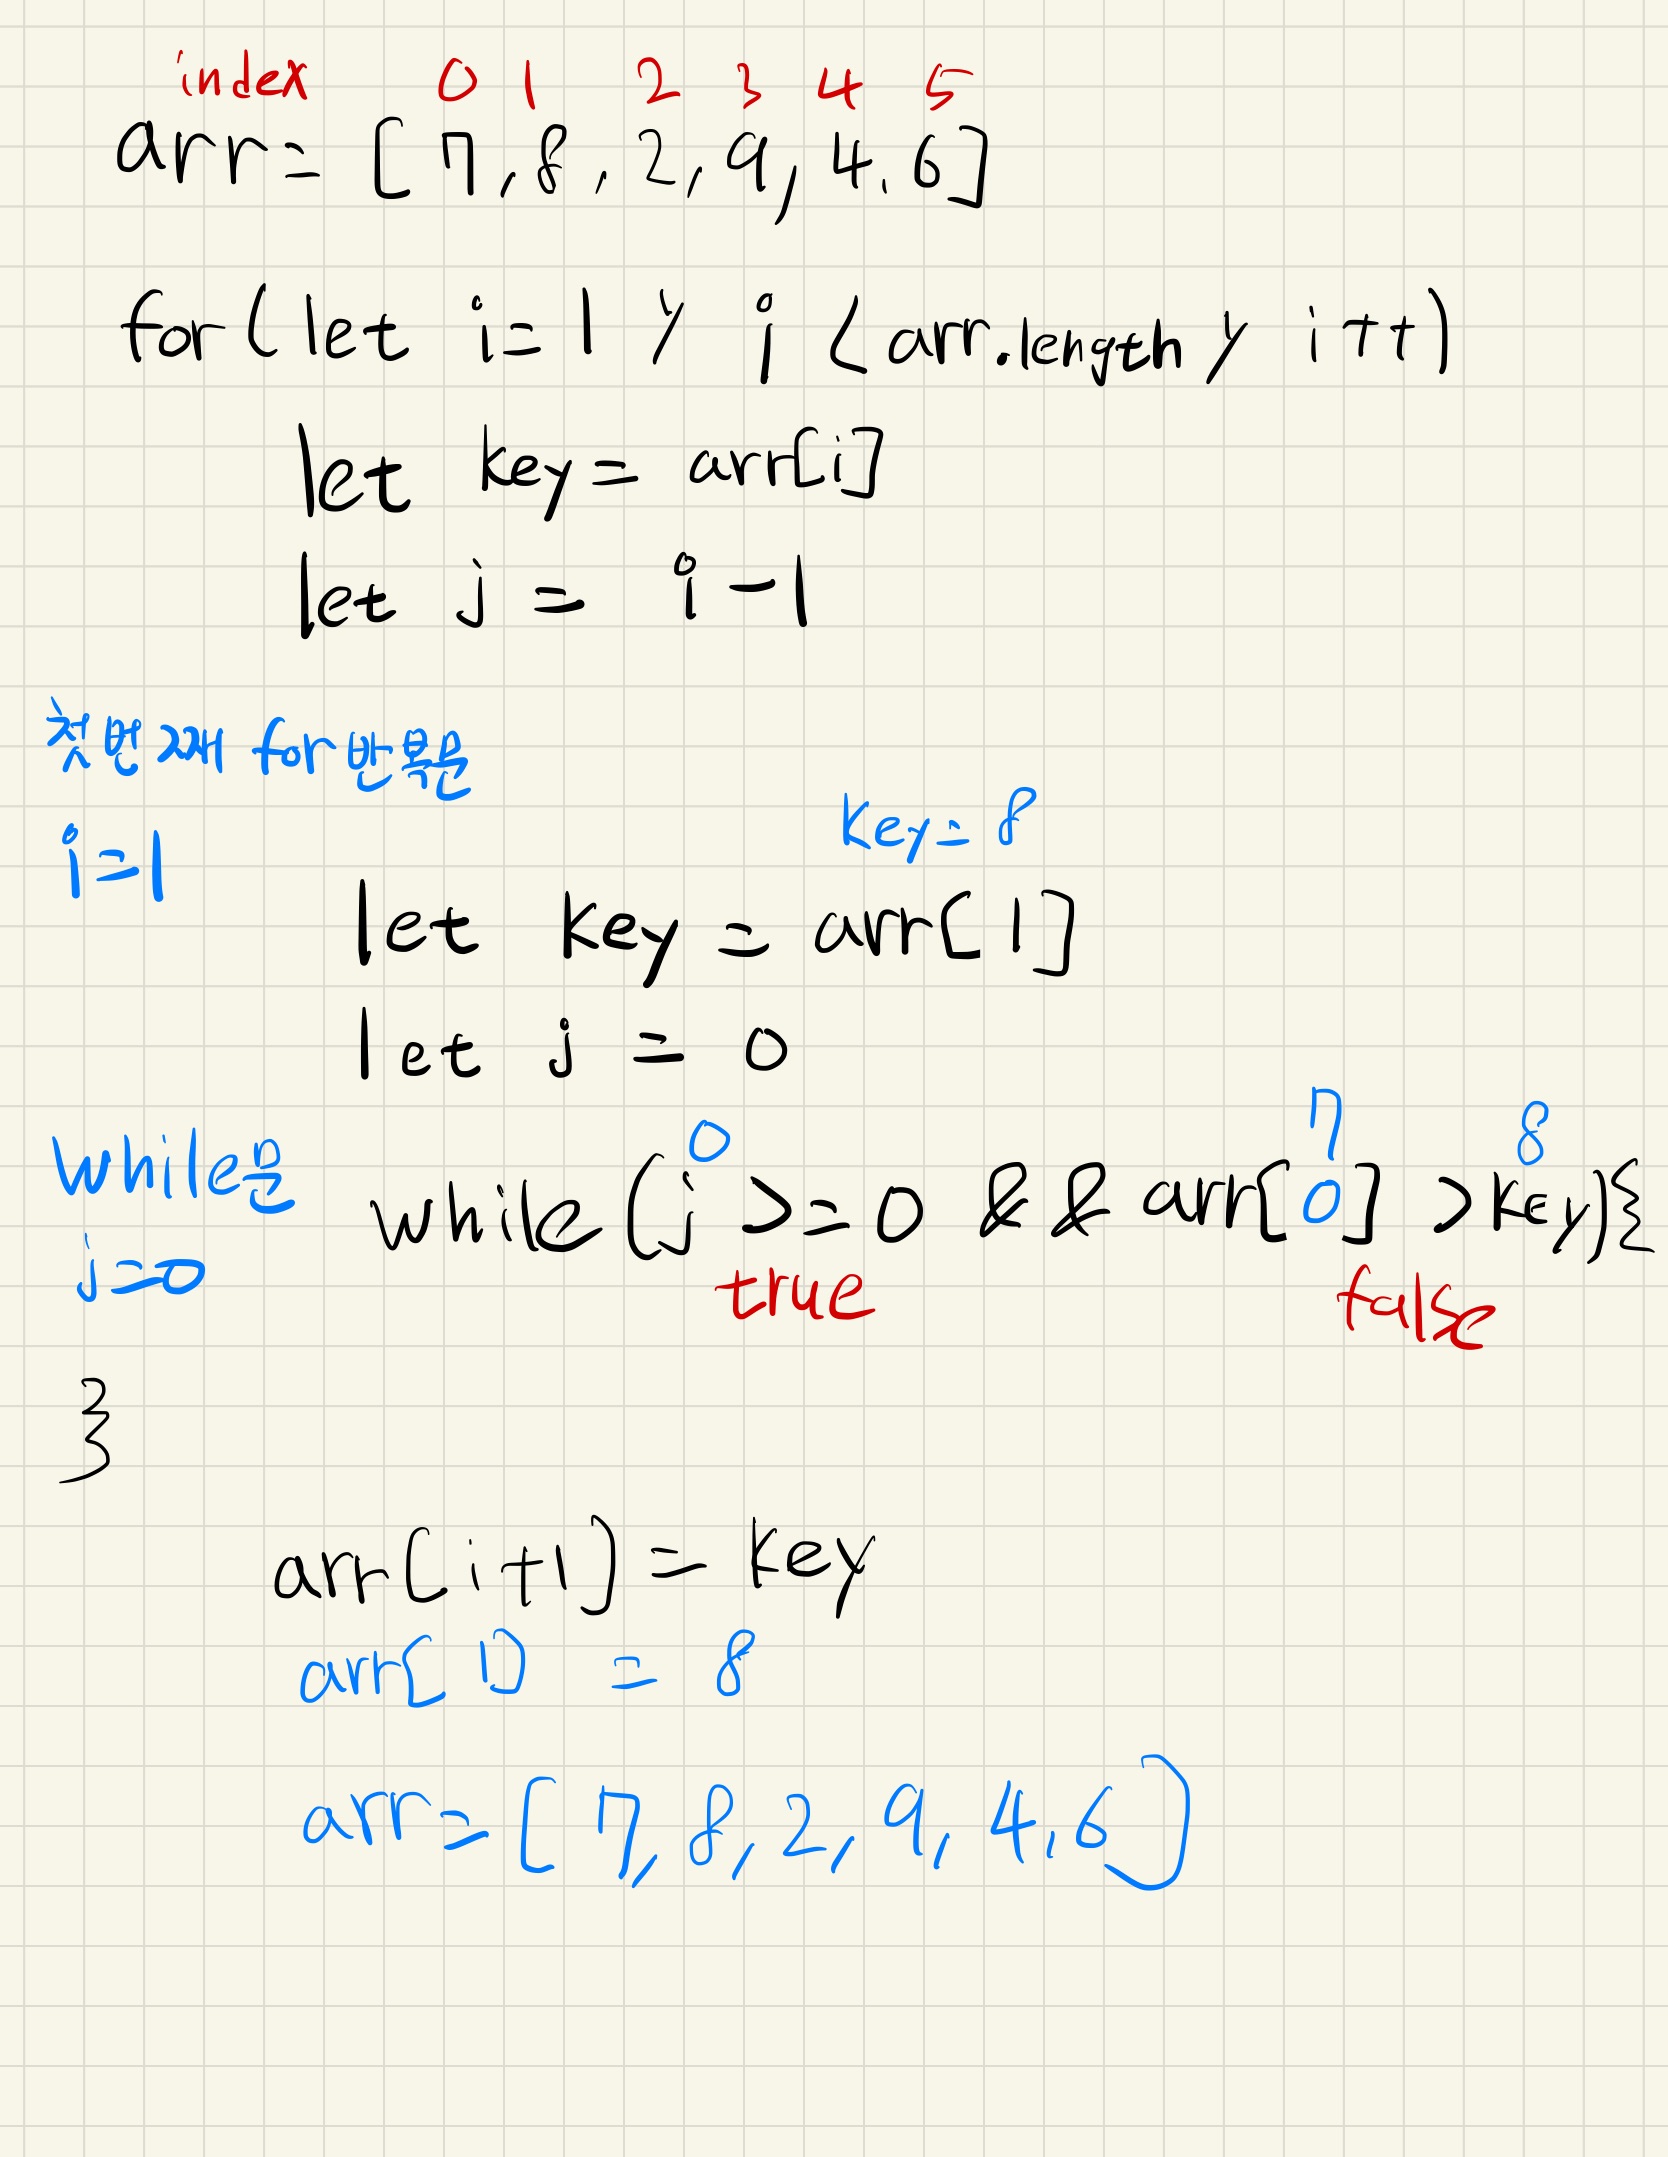 index 0 1 2 3 4 5
arr= [ 7, 8, 2, 9, 4, 6]
for ( let i=1 ; i < arr.length ; i++)
let key = arr[i]
let j = i-1
첫번째 for반복문
i=1
key=8
let key = arr[1]
let j = 0
while문
j=0
0 7 8
while (j >=0 && arr[0] > key){
true false
}
arr[i+1] = key
arr[1] = 8
arr= [ 7, 8, 2, 9, 4, 6]